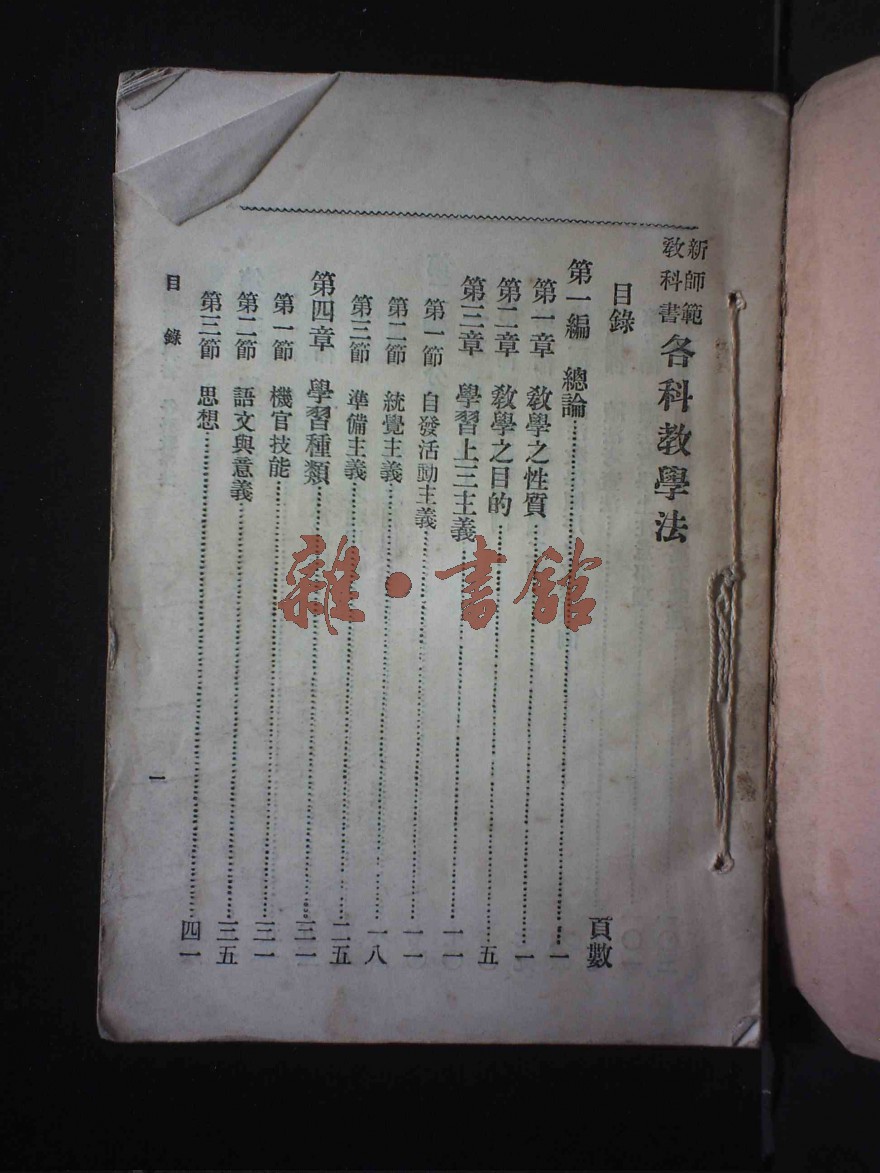 新師範
教科書
各科教學法
目錄
頁數
第一編　總論…………一
第一章　教學之性質…………一
第二章　教學之目的…………五
第三章　學習上三主義…………一一
第一節　自發活動主義…………一一
第二節　統覺主義…………一八
第三節　準備主義…………二五
第四章　學習種類…………三一
第一節　機官技能…………三一
第二節　語文與意義…………三五
第三節　思想…………四一
目錄
一
雜·書館